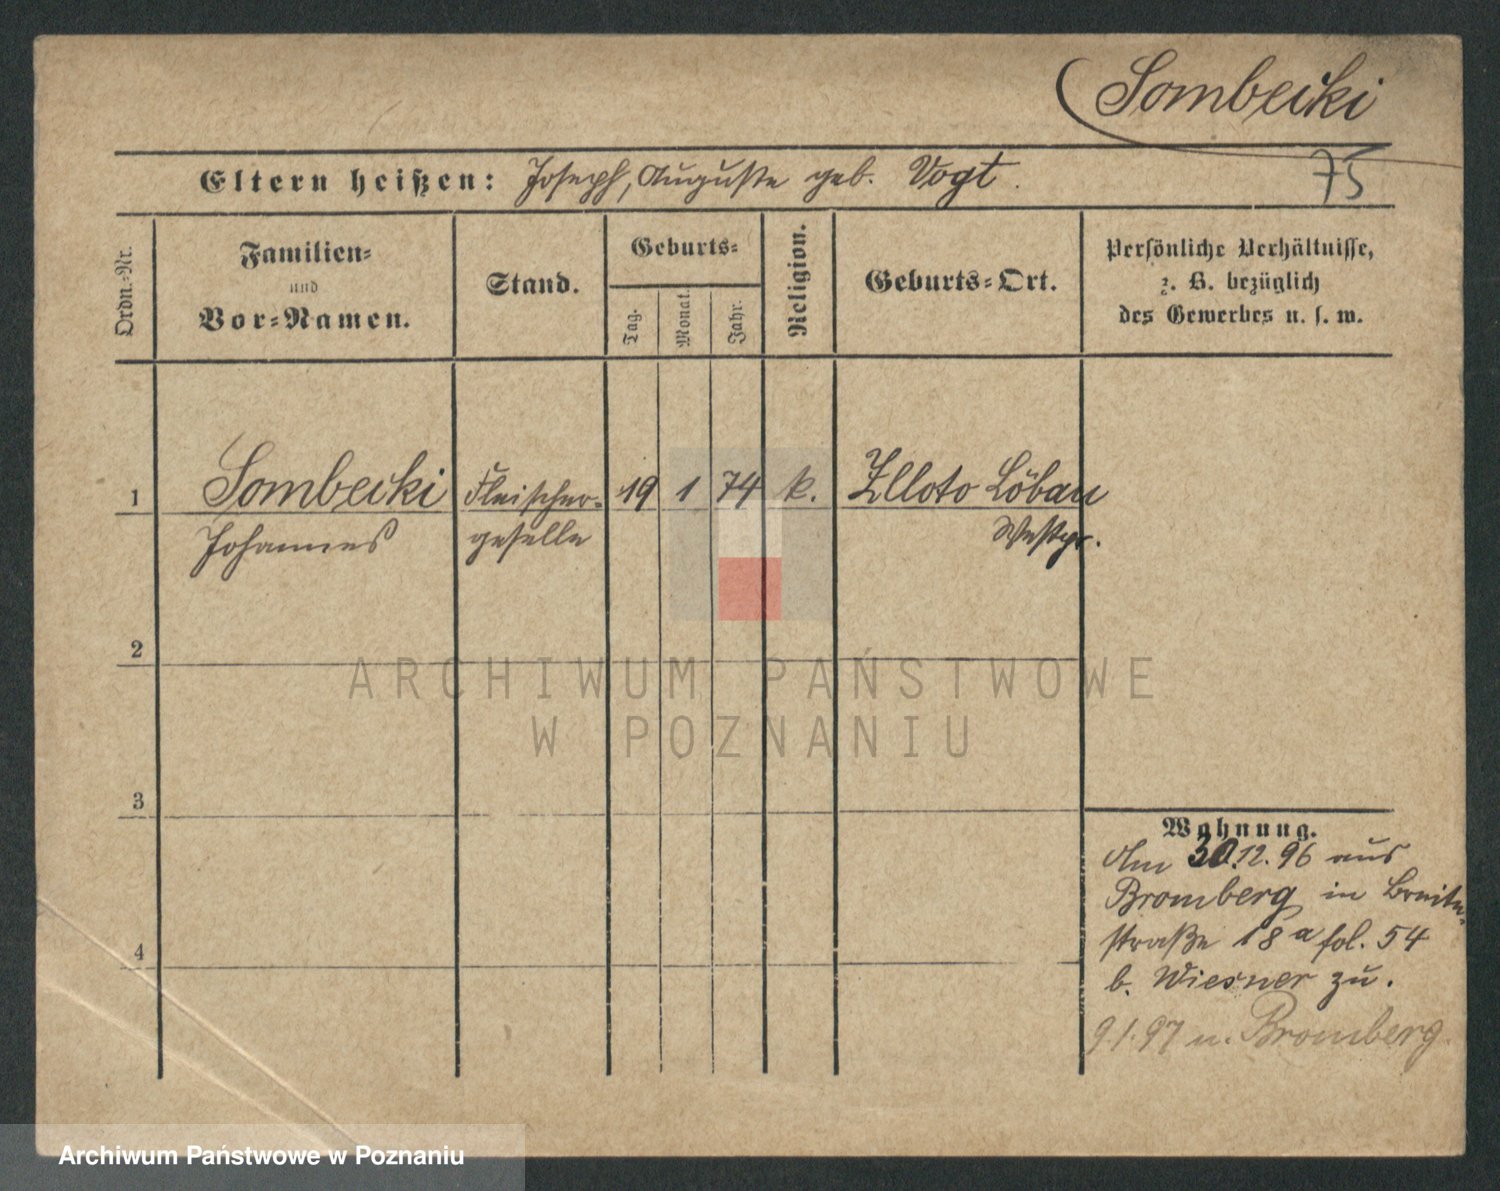 Sombecki
Eltern heißen: Joseph, Auguste geb. Vogt.
75
Ordn.-Nr.
Familien-
und
Vor-Namen.
Stand.
Geburts-
Tag.
Monat.
Jahr.
Religion.
Geburts-Ort.
Persönliche Verhältnisse,
z. B. bezüglich
des Gewerbes u. s. w.
1 Sombecki Fleischer- 19 1 74 k. Zlloto Löbau
Johannes geselle Westpr.
2
3
4
Wohnung.
Am 30.12.96 aus
Bromberg in Breite-
straße 18a fol. 54
b. Wiesner zu.
9.1.97 n. Bromberg.
ARCHIWUM PAŃSTWOWE
W POZNANIU
Archiwum Państwowe w Poznaniu